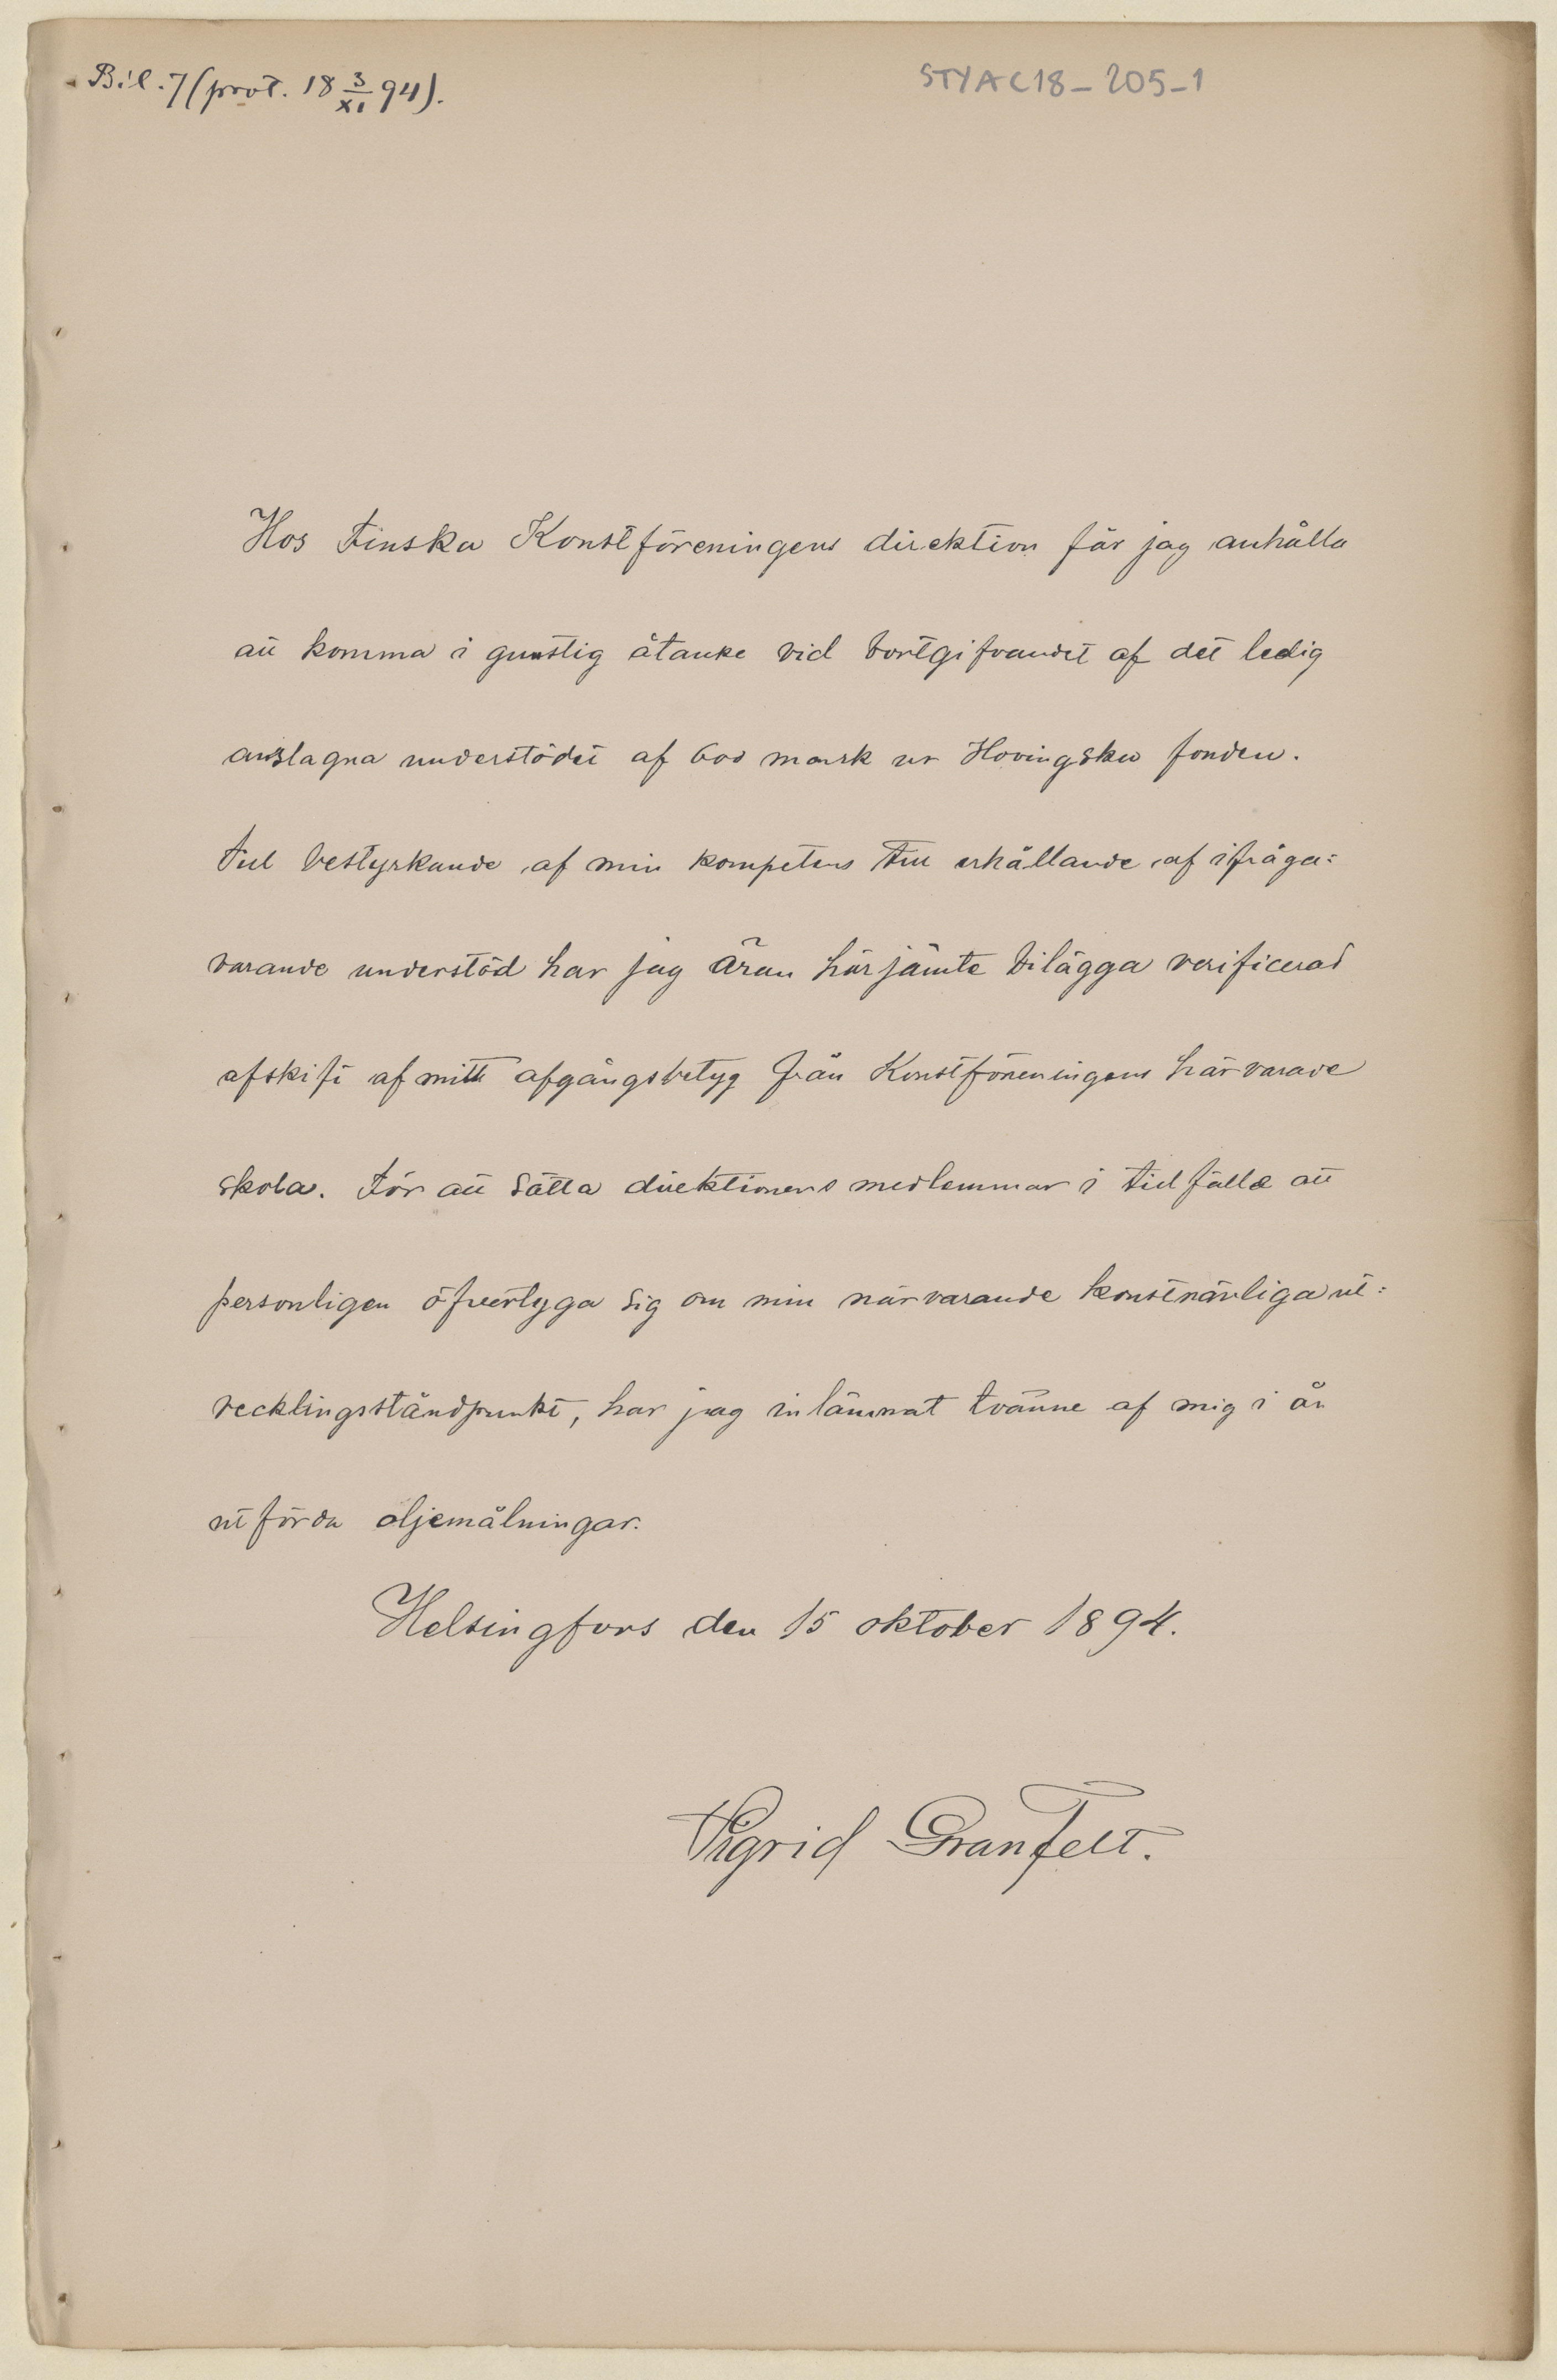 Bil. 7 (prot. 18 3/XI 94).
STYA C18_205_1
Hos Finska Konstföreningens direktion får jag anhålla
att komma i gunstig åtanke vid bortgifvandet af det ledig
anslagna understödet af 600 mark ur Hovingska fonden.
Till bestyrkande af min kompetens till erhållande af ifråga=
varande understöd har jag äran härjämte bilägga verificerad
afskift af mitt afgångsbetyg från Konstföreningens härvarade
skola. För att sätta direktionens medlemmar i tillfälle att
personligen öfvertyga sig om min närvarande konstnärliga ut=
vecklingsståndpunkt, har jag inlämnat tvänne af mig i år
utförda oljemålningar.
Helsingfors den 15 oktober 1894.
Sigrid Granfelt.